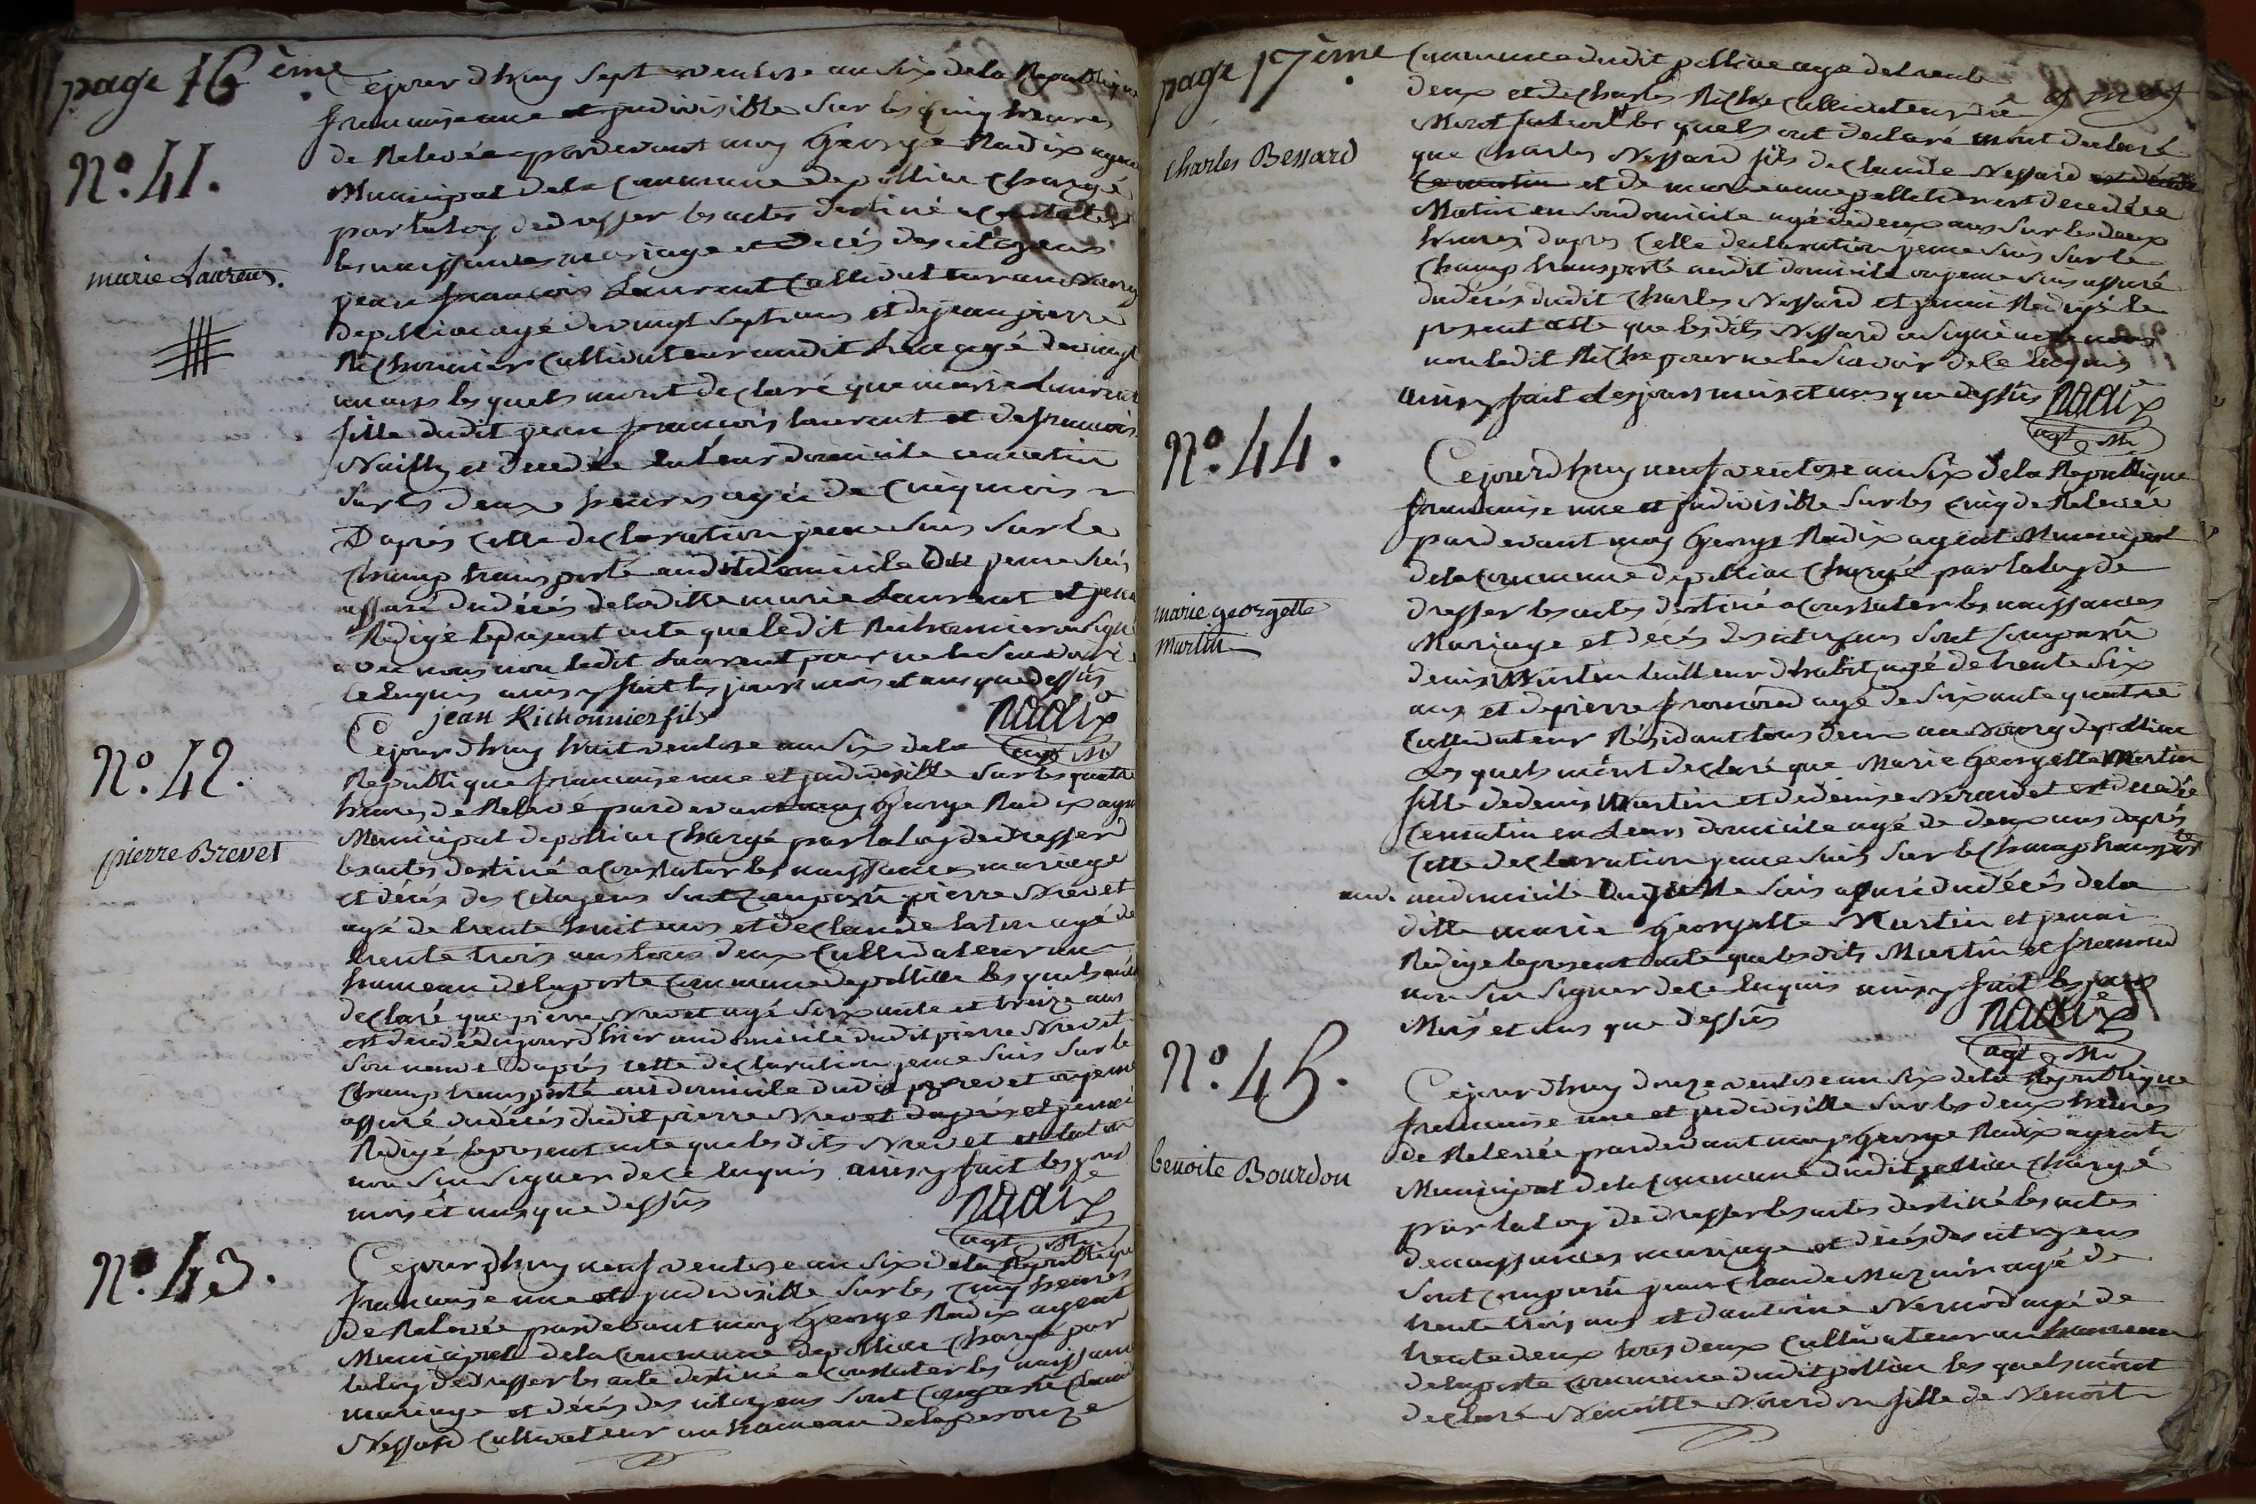 page 16 ème
N.º 41.
marie Laurent.
Cejourdhuy sept ventose an six de la Republique
francaise une et indivisible sur les cinq heures
de Relevée pardevant moy George Radix agent
Municipal dela Commune depolliac chargé
par la loy dedresser les actes destiné a constater
les naissances mariage et Decés des citoyens
jean francois Laurent Cultivateur au Bourg
depolliac agé devingt sept ans et dejean pierre
Richonnier Cultivateur audit lieu agé devingt
un ans les quels mont declaré que marie Laurent
fille dudit jean francois laurent et defrancoise
Nailly est decedée enleur domicile cematin
sur les deux heures agée de Cinq mois
Daprès cette declaration jeme suis sur le
champ transporté audit domicile Ou jeme suis
assuré dudécés deladitte marie Laurent et jenai
Redigé lepresent acte queledit Richonnier a signé
avec nous non ledit Laurent pour ne le scavoir
de ce Enquis ainsy fait les jours mois et ans que Dessûs
jean Richonnier fils Radix
agt Mu
N.º 42.
pierre Brevet
Cejourdhuy huit ventose an six dela
Republique francaise une et indivisible sur les quatre
heures de Relevé pardevant moy George Radix agent
Municipal depolliac chargé par la loy dedresser
les actes destiné a constater les naissances mariage
et décés des citoyens sont comparû pierre Brevet
agé de trente huit ans et declaude laton agé de
trente trois ans tous deux Cultivateur au
hameau delaporte commune depolliac les quels mónt
declaré que pierre Brevet agé soixante et treize ans
est decedé dujourdhier audomicile dudit pierre Brevet
son neveu Daprés cette declaration jeme suis sur le
champ transporté audomicile dudit Brevet oujeme
assuré dudécés dudit pierre Brevet et jenai
Redigé lepresent acte quelesdits Brevet et laton
non scu signer dece Enquis ainsy fait les jours
mois et ans que dessûs
Radix
agt Mu
N.º 43.
Cejourdhuy neuf ventose an six dela Republique
francaise une et indivisible sur les cinq heures
de Relevée pardevant moy George Radix agent
Municipal dela Commune depolliac chargé par
la loy dedresser les acte destiné a constater les naissance
mariage et décés des citoyens sont comparû Claude
Bessard Cultivateur au hameau delaperouze
page 17 ème
Charles Bessard
Commune dudit polliac age detrente
deux et decharles Riche Cultivateur
les quels ont declaré mónt declaré
que charles Bessard fils declaude Bessard
et de marianne pelletier est decedé ce
Matin en son domicile agé dedeux ans sur les deux
heures daprès cette declaration jeme suis sur le
champ transporté audit domicile oujeme suis assuré
dudécés dudit charles Bessard et jenai Redigé le
present acte que lesdits Bessard a signé avec nous
non ledit Riche pour ne le scavoir de ce Enquis
ainsy fait les jours mois et ans que dessûs Radix
agt Mu
N.º 44.
marie georgette
Martin
Cejourdhuy neuf ventose an six dela Republique
francaise une et indivisible sur les cinq de Relevée
pardevant moy George Radix agent Municipal
dela Commune depolliac chargé par la loy de
dresser les actes destiné a constater les naissances
Mariage et décés des citoyens sont comparû
denis Martin tailleur dhabit agé de trente six
ans et depierre fromond agé de soixante quatre
Cultivateur Résidant tous deux au Bourg depolliac
Les quels mónt declaré que Marie Georgette Martin
fille dedenis Martin et dedenise Veraudet est decedée
Cematin en Leurs domicile agé de deux ans daprés
cette declaration jeme suis sur le champ transporté
audomicile Oujeme suis assuré dudécés dela
ditte marie Georgette Martin et jenai
Redigé lepresent acte quelesdits Martin et fromond
non scu signer de ce Enquis ainsy fait les jours
Mois et ans que dessûs Radix
agt Mu
N.º 45.
benoite Bourdon
Cejourdhuy douze ventose an six dela Republique
francaise une et indivisible sur les deux heures
de Relevée pardevant moy George Radix agent
Municipal dela Commune dudit polliac chargé
par la loy dedresser les actes destiné les actes
denaissances mariage et décés des citoyens
sont comparû jean claude Mazuir agé de
trente trois ans et dantoine agé de
trente deux tous deux Cultivateur au hameau
delaporte commune dudit polliac les quels mónt
declaré Benoitte Bourdon fille de Benoit